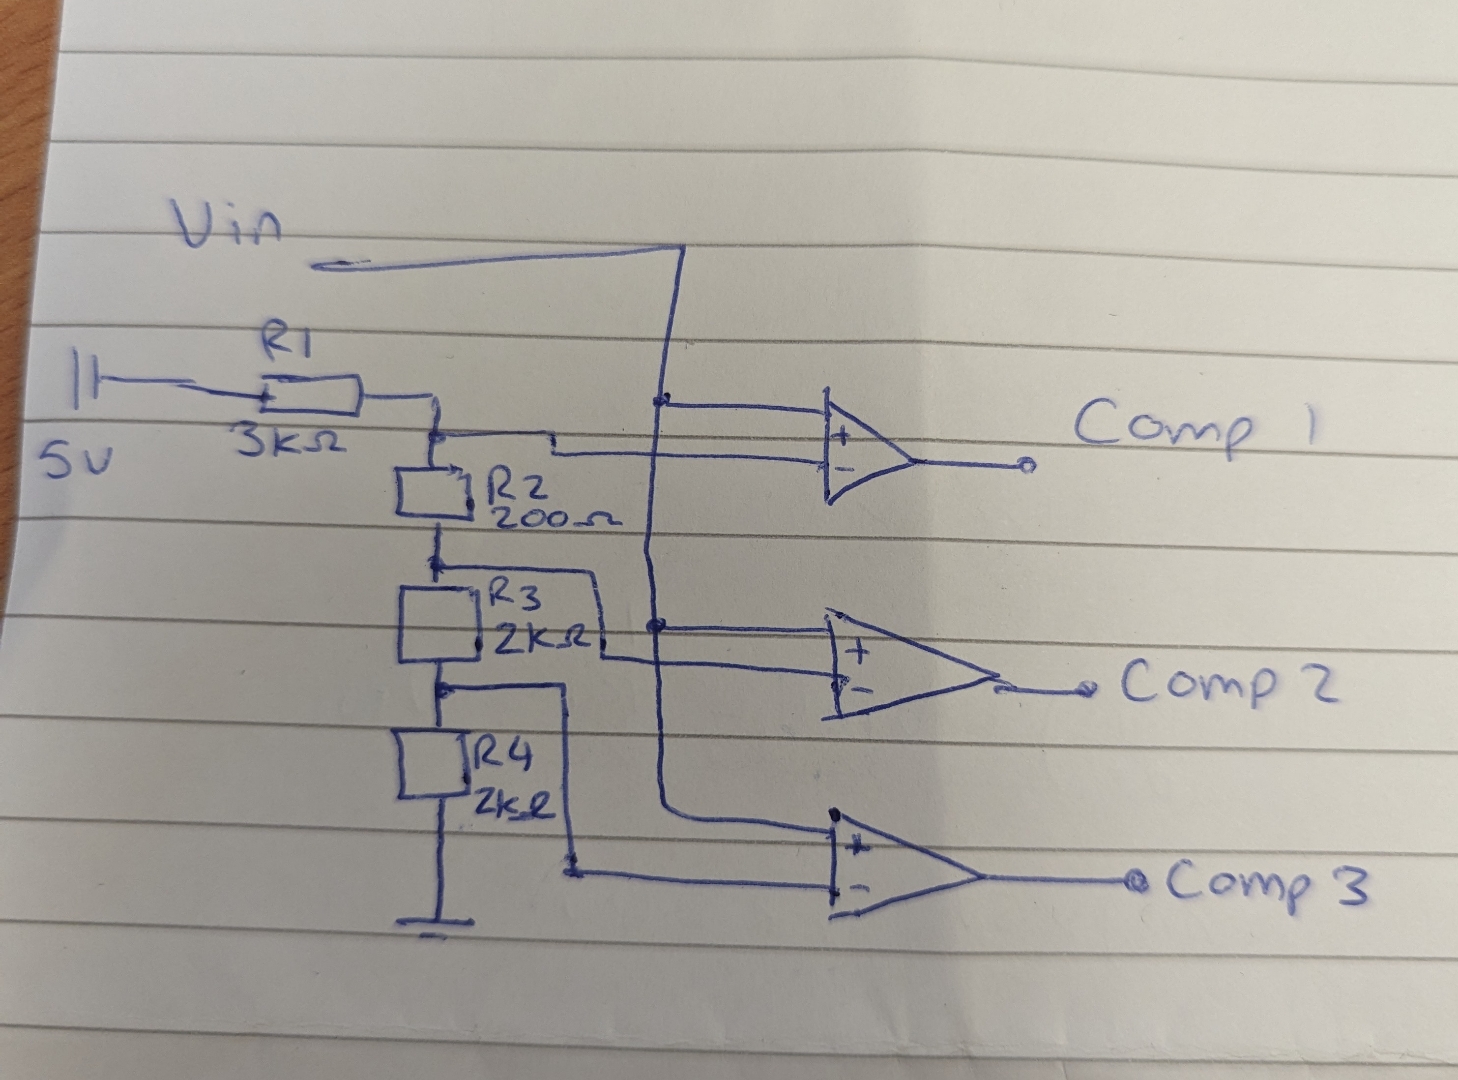 Vin
R1
3kΩ
5v
Comp 1
+
-
R2
200Ω
R3
2kΩ
+
-
Comp 2
R4
2kΩ
+
-
Comp 3